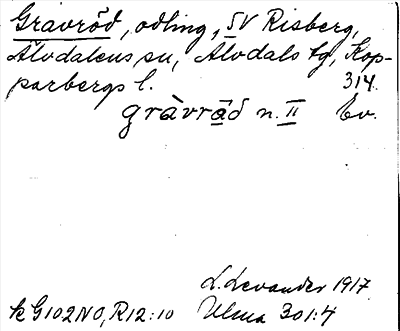 Gravröð, odling, SV Risberg,
Älvdalens sn, Älvdals tg, Kop-
parbergs l. 314.
gràvrä̀d n. II Lv.
L. Levander 1917
k G102NO, R12:10 Ulma 301:4